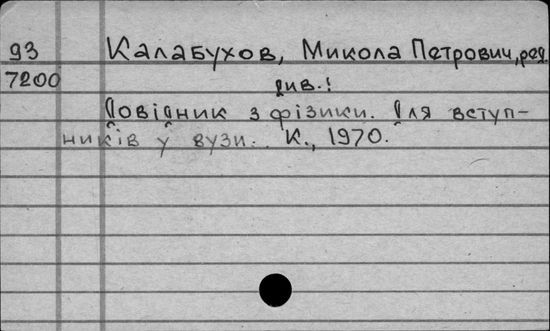 93 Калабухов, Микола Петрович, ред.
7200 див.:
Довідник з фізики. Для вступ-
ників у вузи. К., 1970.